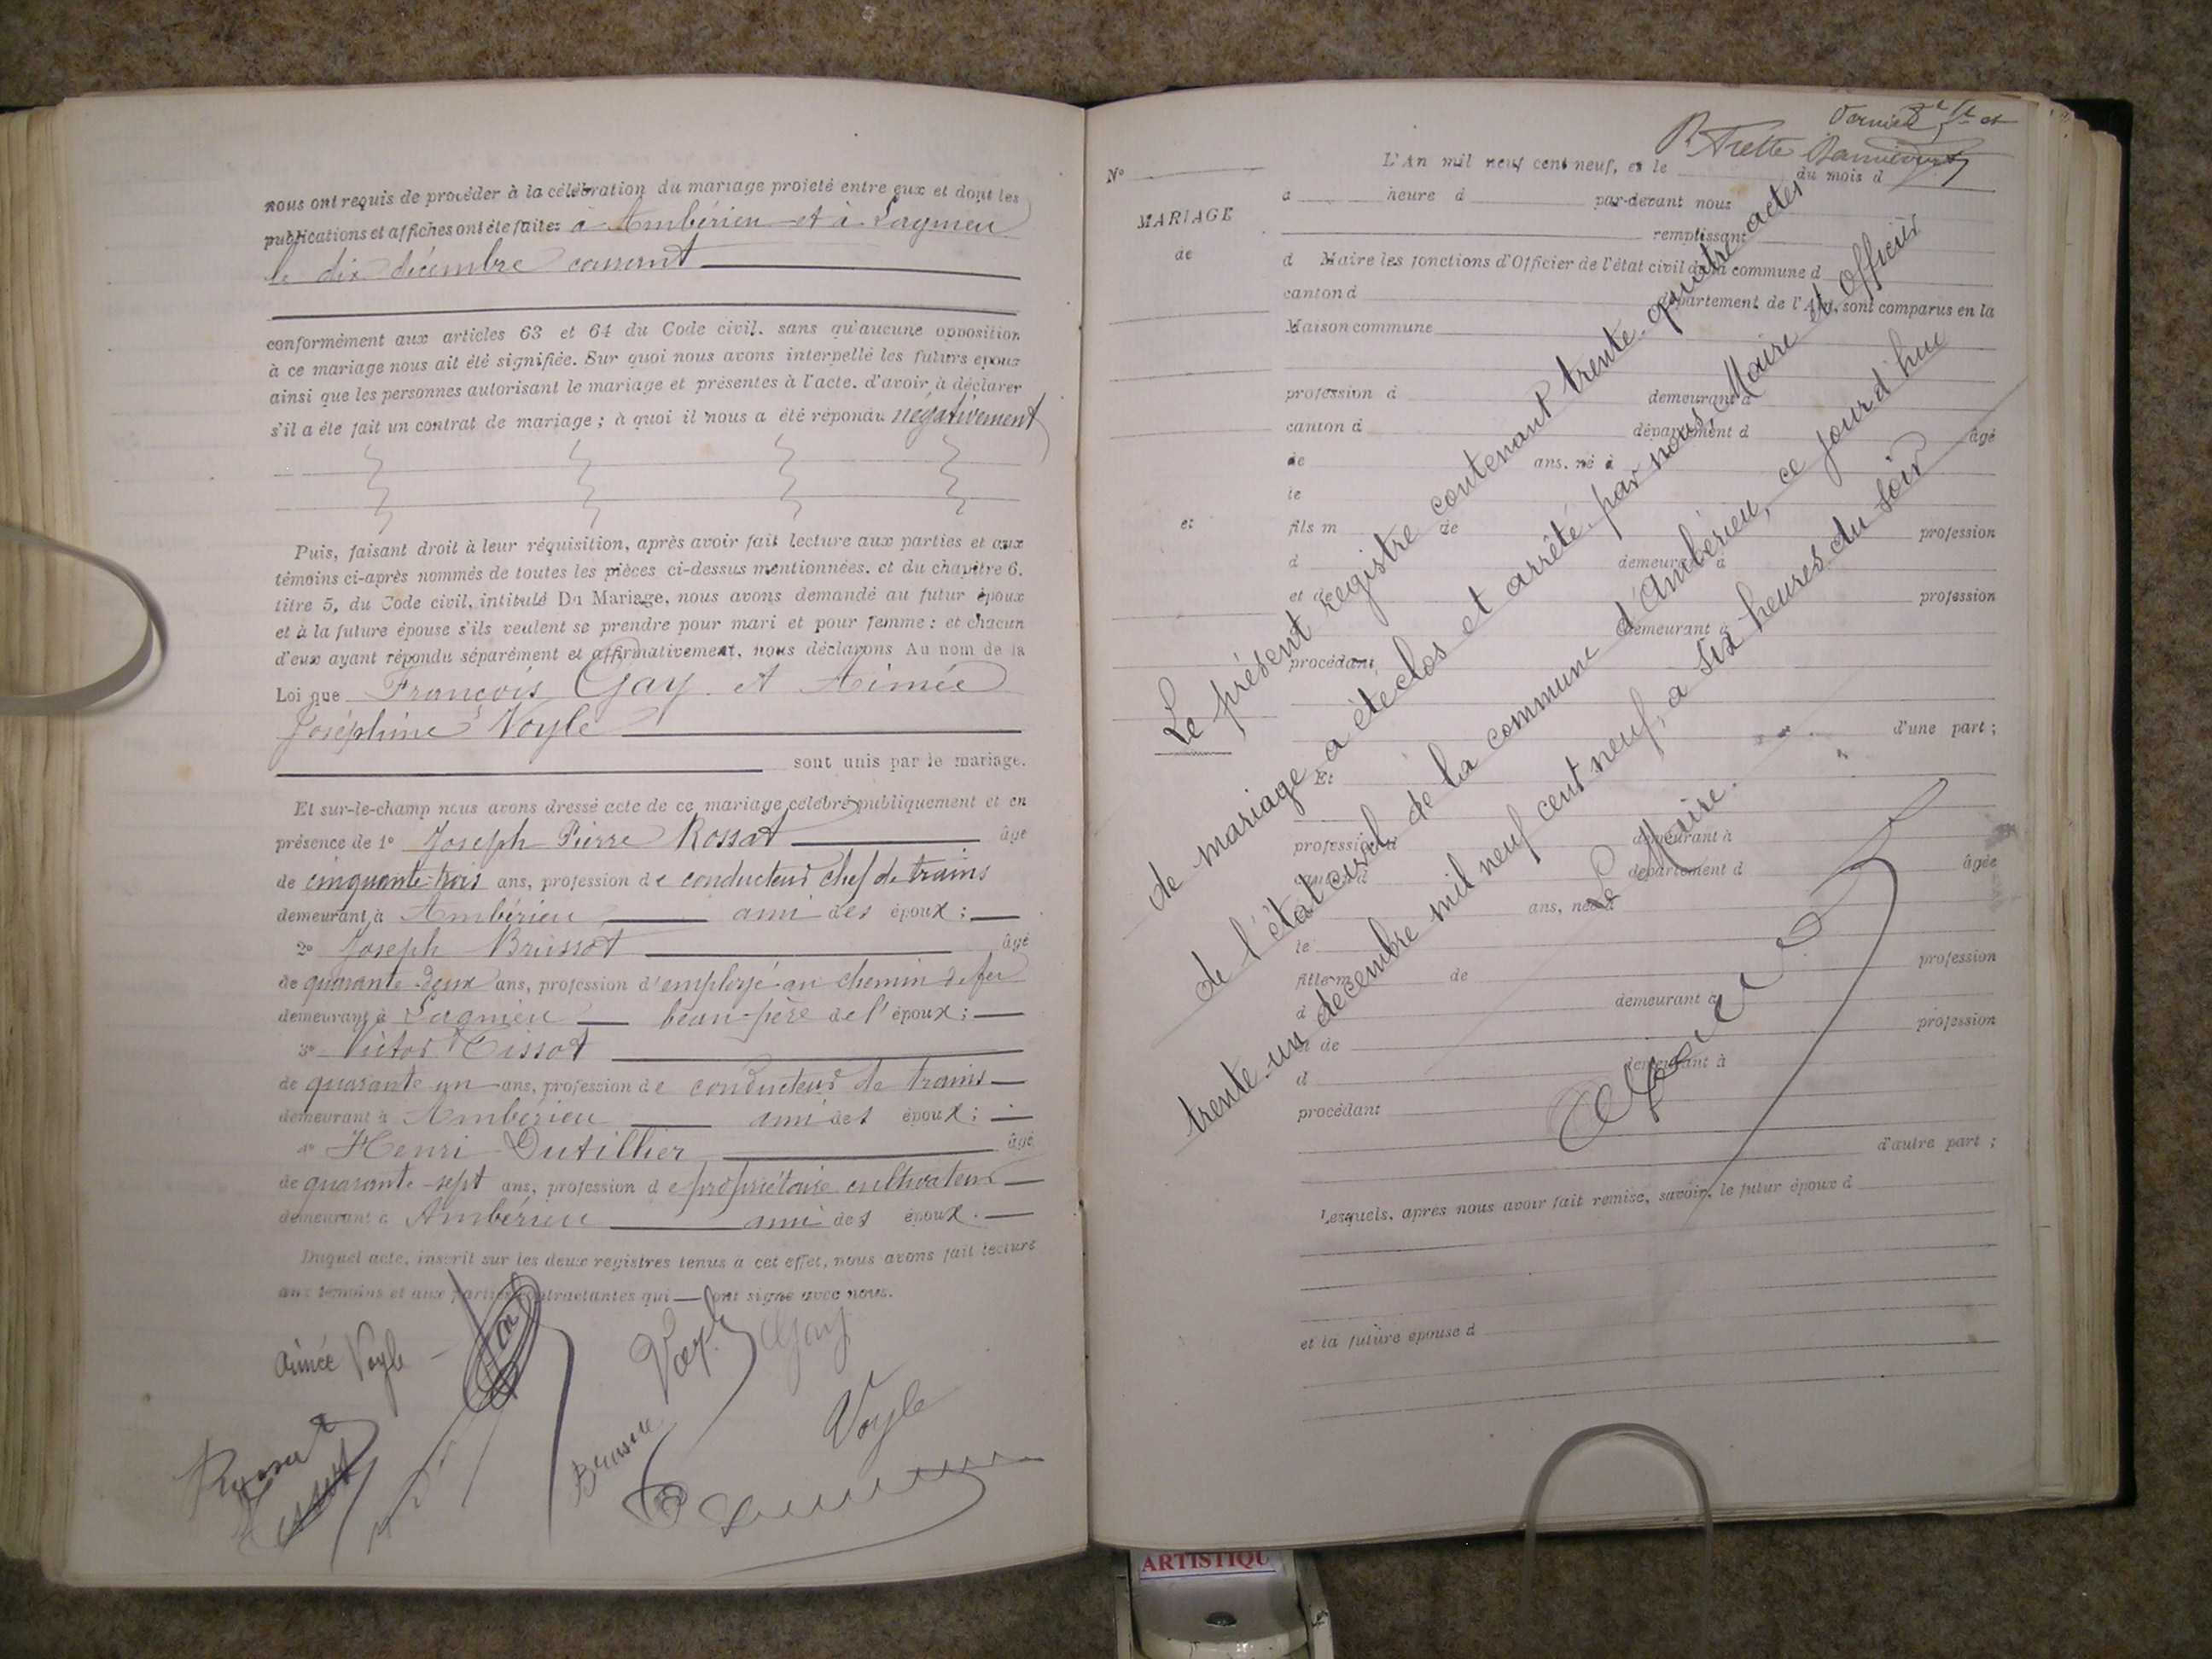 nous ont requis de procéder à la célébration du mariage projeté entre eux et dont les
publications et affiches ont été faites à Ambérieu et à Lagnieu
le dix décembre courant
conformément aux articles 63 et 64 du Code civil, sans qu'aucune opposition
à ce mariage nous ait été signifiée. Sur quoi nous avons interpellé les futurs epoux
ainsi que les personnes autorisant le mariage et présentes à l'acte, d'avoir à déclarer
s'il a été fait un contrat de mariage ; à quoi il nous a été répondu négativement
Puis, faisant droit à leur réquisition, après avoir fait lecture aux parties et aux
témoins ci-après nommés de toutes les pièces ci-dessus mentionnées, et du chapitre 6,
titre 5, du Code civil, intitulé Du Mariage, nous avons demandé au futur époux
et à la future épouse s'ils veulent se prendre pour mari et pour femme : et chacun
d'eux ayant répondu séparément et affirmativement, nous déclarons Au nom de la
Loi que François Gay et Aimée
Joséphine Voyle
sont unis par le mariage.
Et sur-le-champ nous avons dressé acte de ce mariage célébré publiquement et en
présence de 1° Joseph Pierre Rossat âgé
de cinquante-trois ans, profession de conducteur chef de trains
demeurant à Ambérieu ami des époux ;
2° Joseph Brussot âgé
de quarante-deux ans, profession d'employé au chemin de fer
demeurant à Lagnieu beau-père de l'époux ;
3° Victor Tissot
de quarante un ans, profession de conducteur de trains
demeurant à Ambérieu ami des époux ;
4° Henri Dutillier âgé
de quarante-sept ans, profession de propriétaire cultivateur
demeurant à Ambérieu ami des époux.
Duquel acte, inscrit sur les deux registres tenus à cet effet, nous avons fait lecture
aux témoins et aux parties contractantes qui ont signé avec nous.
Aimée Voyle
Gay
Voyle
Rossat
N°
MARIAGE
de
et
L'An mil neuf cent neuf, et le du mois d
a heure d par-devant nous
remplissant
d Maire les fonctions d'Officier de l'état civil de la commune d
canton d département de l'Ain, sont comparus en la
Maison commune
profession d demeurant à
canton d département d âgé
de ans, né à
le
fils m de profession
d demeurant à
et de profession
demeurant à
procédant
d'une part ;
Et
profession d demeurant à
canton d département d âgée
ans, née à
le
fille m de profession
d demeurant à
et de profession
d demeurant à
procédant
d'autre part ;
Lesquels, après nous avoir fait remise, savoir, le futur époux d
et la future épouse d
Le présent registre contenant trente-quatre actes
de mariage a été clos et arrêté par nous, Maire et officier
de l'état civil de la commune d'Ambérieu, ce jourd'hui
trente-un décembre mil neuf cent neuf, à six heures du soir
Le Maire.
ARTISTIQU